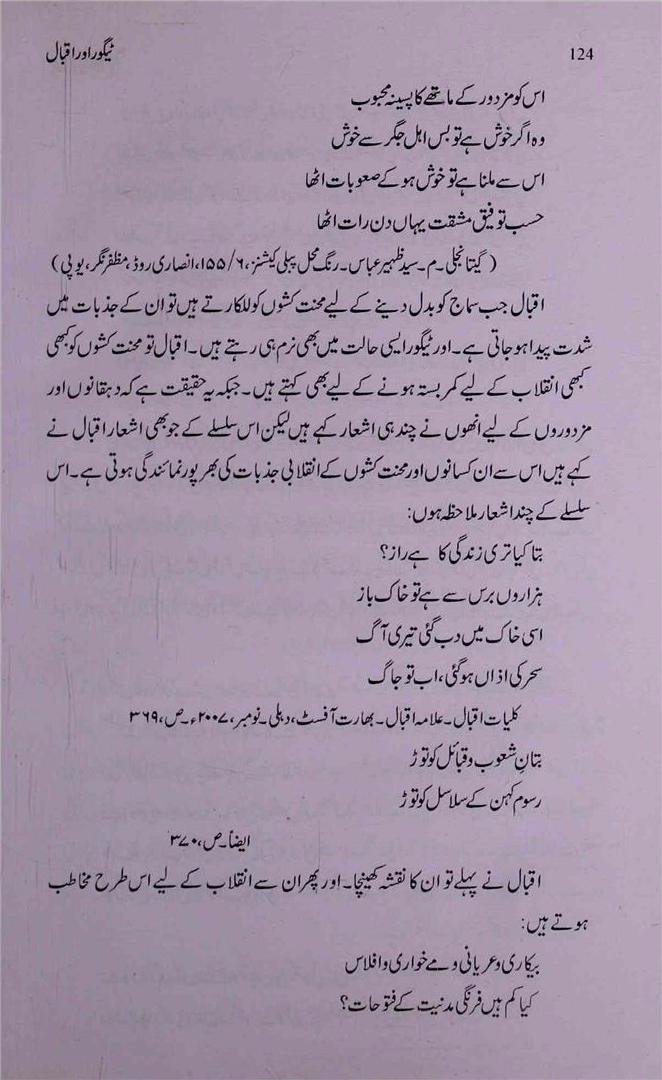 124 ٹیگور اور اقبال
اس کو مزدور کے ماتھے کا پسینہ محبوب
وہ اگر خوش ہے تو بس اہل جگر سے خوش
اس سے ملنا ہے تو خوش ہو کے صعوبات اٹھا
حسب توفیق مشقت یہاں دن رات اٹھا
(گیتانجلی۔م۔سید ظہیر عباس۔رنگ محل پبلی کیشنز،۱۵۵/۶،انصاری روڈ،مظفر نگر،یوپی)
اقبال جب سماج کو بدل دینے کے لیے محنت کشوں کو للکارتے ہیں تو ان کے جذبات میں
شدت پیدا ہو جاتی ہے۔اور ٹیگور ایسی حالت میں بھی نرم ہی رہتے ہیں۔اقبال تو محنت کشوں کو کبھی
کبھی انقلاب کے لیے کمر بستہ ہونے کے لیے بھی کہتے ہیں۔جبکہ یہ حقیقت ہے کہ دہقانوں اور
مزدوروں کے لیے انھوں نے چند ہی اشعار کہے ہیں لیکن اس سلسلے کے جو بھی اشعار اقبال نے
کہے ہیں اس سے ان کسانوں اور محنت کشوں کے انقلابی جذبات کی بھر پور نمائندگی ہوتی ہے۔اس
سلسلے کے چند اشعار ملاحظہ ہوں:
بتا کیا تری زندگی کا ہے راز؟
ہزاروں برس سے ہے تو خاک باز
اسی خاک میں دب گئی تیری آگ
سحر کی اذاں ہو گئی،اب تو جاگ
کلیات اقبال۔علامہ اقبال۔بھارت آفسٹ،دہلی۔نومبر،۲۰۰۷ء۔ص،۳۶۹
بتانِ شعوب و قبائل کو توڑ
رسوم کہن کے سلاسل کو توڑ
ایضاً۔ص،۳۷۰
اقبال نے پہلے تو ان کا نقشہ کھینچا۔اور پھر ان سے انقلاب کے لیے اس طرح مخاطب
ہوتے ہیں:
بیکاری و عریانی و مے خواری و افلاس
کیا کم ہیں فرنگی مدنیت کے فتوحات؟